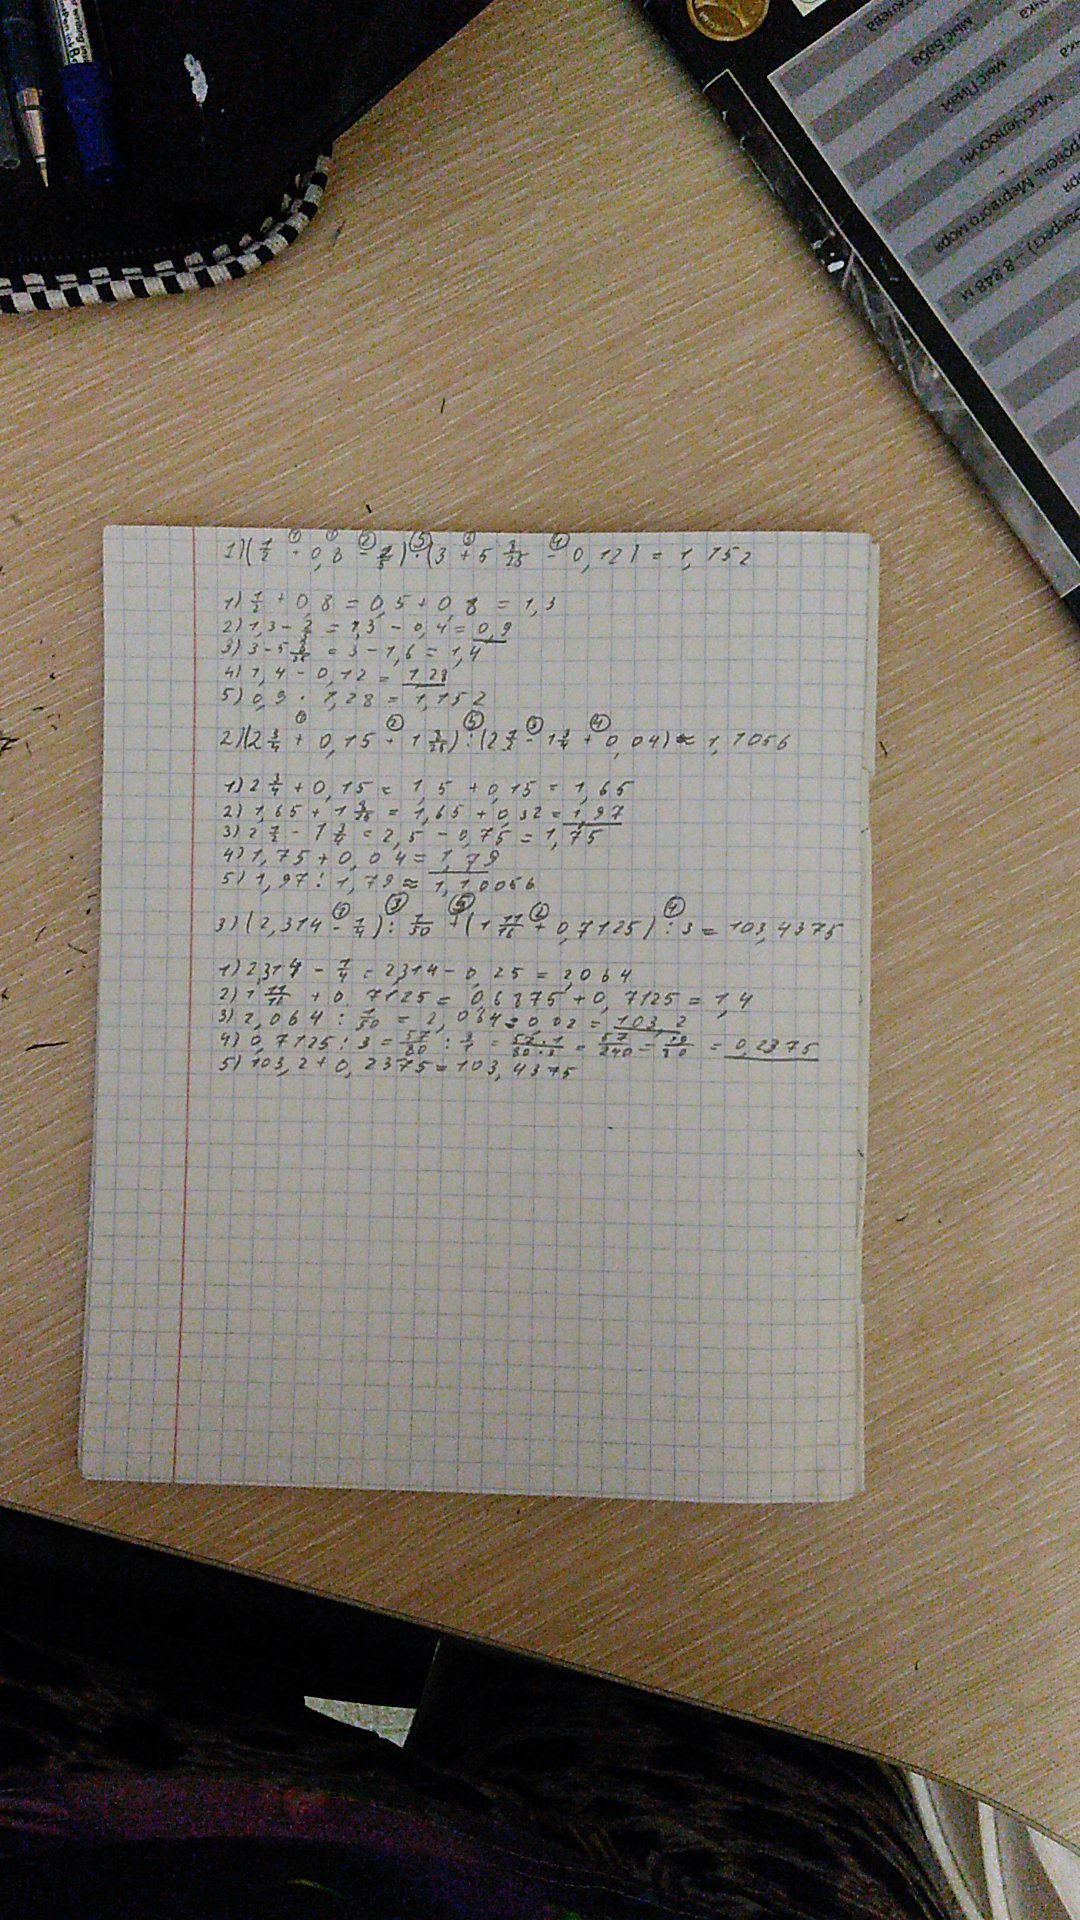 writing inst
В.
жнева
чка
Мыс Баба
чка
Мыс Пиай
Мыс Челюскин
ровень Мертвого моря
ря
Эверест) – 8 848 м
1)(1/2 + 0,8 - 2/5) · (3 + 5 3/25 - 0,12) = 1,152
1) 1/2 + 0,8 = 0,5 + 0,8 = 1,3
2) 1,3 - 2/5 = 1,3 - 0,4 = 0,9
3) 3 - 5 3/25 = 3 - 1,6 = 1,4
4) 1,4 - 0,12 = 1,28
5) 0,9 · 1,28 = 1,152
2)(2 3/4 + 0,15 + 1 8/25) : (2 1/2 - 1 3/4 + 0,04) ≈ 1,1056
1) 2 3/4 + 0,15 = 1,5 + 0,15 = 1,65
2) 1,65 + 1 8/25 = 1,65 + 0,32 = 1,97
3) 2 1/2 - 1 3/4 = 2,5 - 0,75 = 1,75
4) 1,75 + 0,04 = 1,79
5) 1,97 : 1,79 ≈ 1,10056
3)(2,314 - 1/4) : 1/50 + (1 11/16 + 0,7125) : 3 = 103,4375
1) 2,314 - 1/4 = 2,314 - 0,25 = 2,064
2) 1 11/16 + 0,7125 = 0,6875 + 0,7125 = 1,4
3) 2,064 : 1/50 = 2,064 : 0,02 = 103,2
4) 0,7125 : 3 = 57/80 : 3/1 = 57·1/80·3 = 57/240 = 19/80 = 0,2375
5) 103,2 + 0,2375 = 103,4375